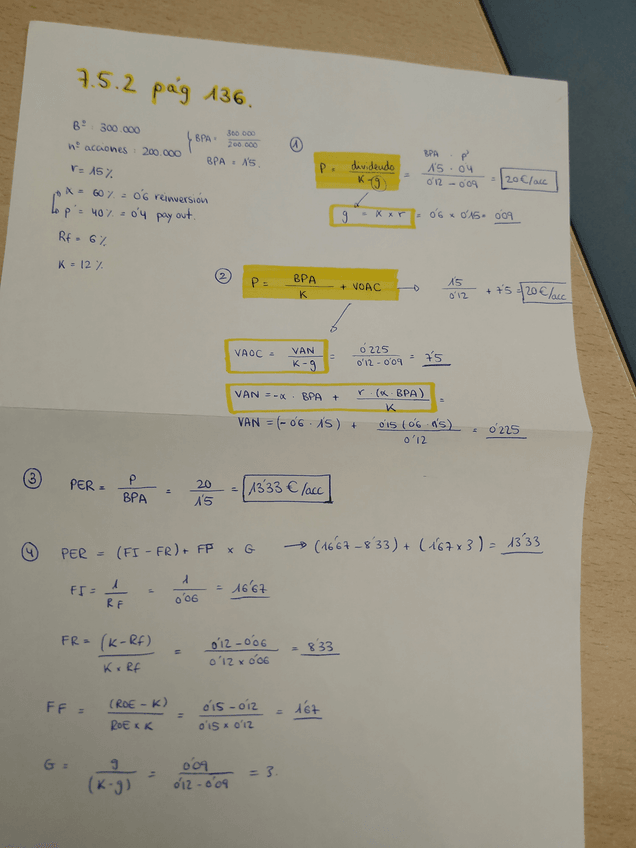 7.5.2 pág 136.
Bº = 300.000
nº acciones = 200.000
BPA = 300.000 / 200.000
BPA = 1'5.
r = 15%
x = 60% = 0'6 reinversión
p' = 40% = 0'4 pay out.
Rf = 6%
K = 12%
① P = dividendo / K-g = BPA · p' 1'5 · 0'4 / 0'12 - 0'09 = 20€/acc
g = x x r = 0'6 x 0'15 = 0'09
② P = BPA / K + VOAC → 1'5 / 0'12 + 7'5 = 20€/acc
VAOC = VAN / K-g = 0'225 / 0'12 - 0'09 = 7'5
VAN = -x · BPA + r · (x · BPA) / K =
VAN = (-0'6 · 1'5) + 0'15 (0'6 · 1'5) / 0'12 = 0'225
③ PER = P / BPA = 20 / 1'5 = 13'33 €/acc
④ PER = (FI - FR) + FF x G → (16'67 - 8'33) + (1'67 x 3) = 13'33
FI = 1 / RF = 1 / 0'06 = 16'67
FR = (K - Rf) / K x Rf = 0'12 - 0'06 / 0'12 x 0'06 = 8'33
FF = (ROE - K) / ROE x K = 0'15 - 0'12 / 0'15 x 0'12 = 1'67
G = g / (K - g) = 0'09 / 0'12 - 0'09 = 3.